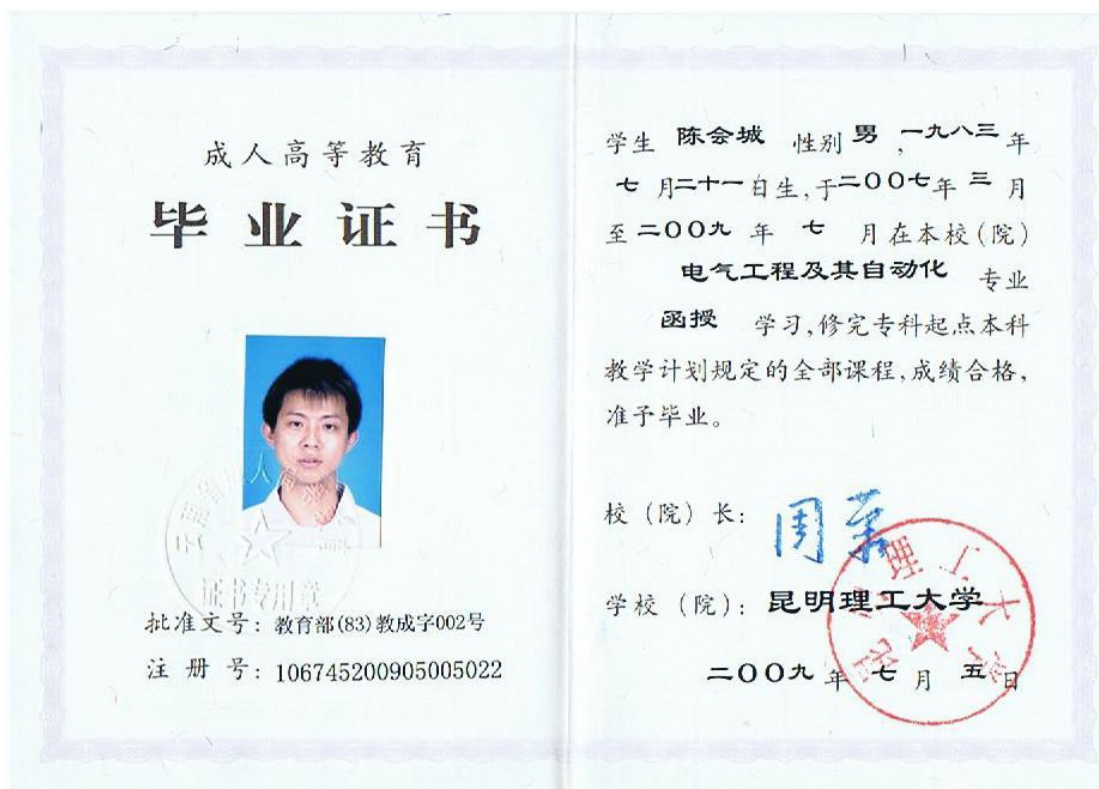 成人高等教育
毕业证书
证书专用章
批准文号：教育部(83)教成字002号
注册号：106745200905005022
学生 陈会城 性别 男，一九八三年
七月二十一日生，于二〇〇七年三月
至二〇〇九年七月在本校（院）
电气工程及其自动化 专业
函授 学习，修完专科起点本科
教学计划规定的全部课程，成绩合格，
准予毕业。
校（院）长：
学校（院）：昆明理工大学
二〇〇九年七月五日
昆明理工大学